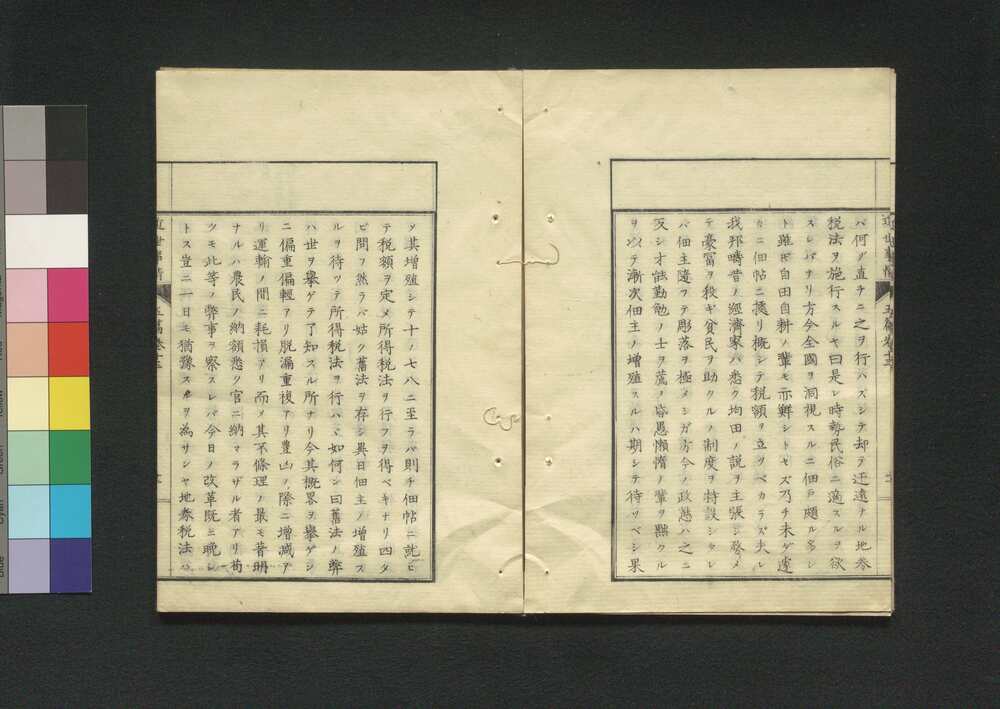 バ何ゾ直チニ之ヲ行ハズシテ却テ迂遠ナル地券
税法ヲ施行スルヤ曰是レ時勢民俗ニ適スルヲ欲
スレバナリ方今全國ヲ洞視スルニ佃戸頗ル多シ
ト雖𪜈自田自耕ノ輩モ亦尠シトセズ乃チ未ダ遽
カニ佃帖ニ據リ概シテ税額ヲ立ツベカラズ夫レ
我邦疇昔ノ經濟家ハ悉ク均田ノ説ヲ主張シ務メ
テ豪富ヲ殺ギ貧民ヲ助クルノ制度ヲ特設シタレ
バ佃主隨フテ彫落ヲ極メシガ方今ノ政態ハ之ニ
反シ才能勤勉ノ士ヲ薦メ昏愚懶惰ノ輩ヲ黜クル
ヲ以テ漸次佃主ノ増殖スルハ期シテ待ツベシ果
近世
五篇卷十三
ヲ其増殖シテ十ノ七八ニ至ラバ則チ佃帖ニ就ヒ
テ税額ヲ定メ所得税法ヲ行フヲ得ベキナリ四タ
ビ問フ然ラバ姑ク舊法ヲ存シ異日佃主ノ増殖ス
ルヲ待ツテ所得税法ヲ行ハヾ如何ン曰舊法ノ弊
ハ世ヲ擧ゲテ了知スル所ナリ今其概畧ヲ擧ゲン
ニ偏重偏輕アリ脱漏重複アリ豊凶ノ際ニ増減ア
リ運輸ノ間ニ耗損アリ而メ其不條理ノ最モ著明
ナルハ農民ノ納額悉ク官ニ納マラザル者アリ苟
ツモ此等ノ弊事ヲ察スレバ今日ノ改革既ニ晩シ
トス豈ニ一日モ猶豫スルヲ為サンヤ地券税法ハ
近世
五篇卷十三